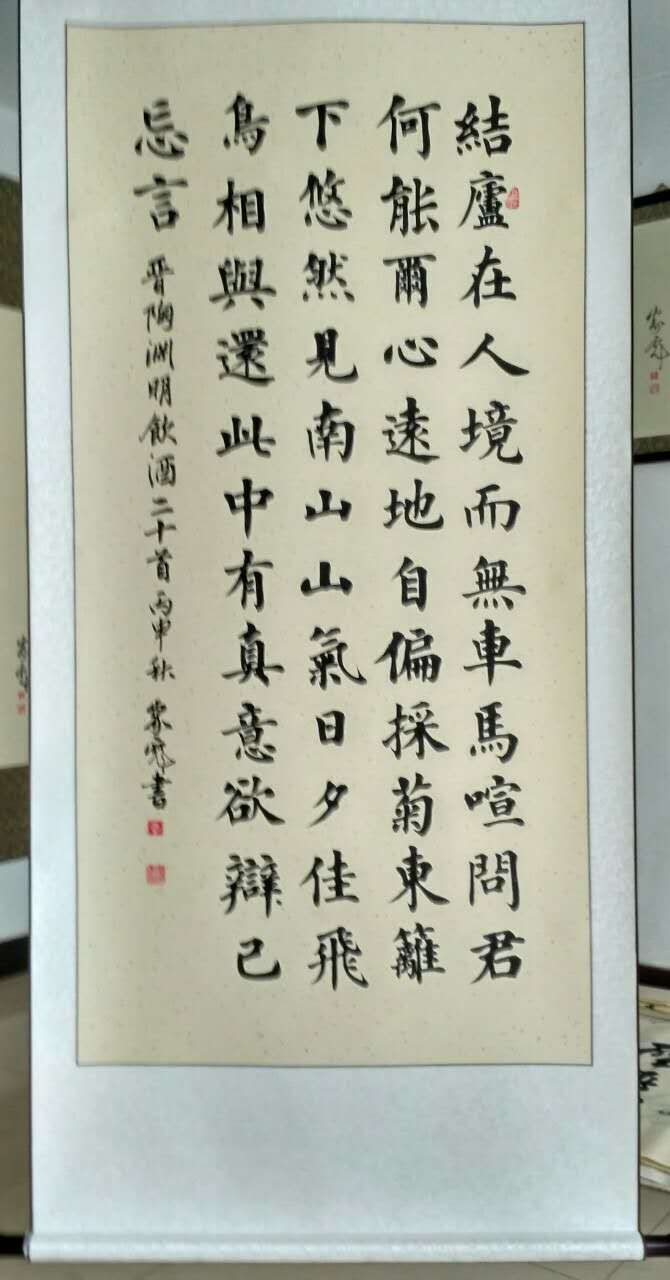 結廬在人境而無車馬喧問君
何能爾心遠地自偏採菊東籬
下悠然見南山山氣日夕佳飛
鳥相與還此中有真意欲辯已
忘言
晉陶渊明飲酒二十首丙申秋書